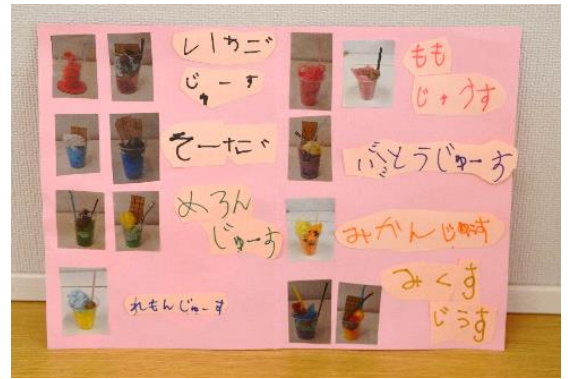 いちご
じゅーす
そーだ
めろん
じゅーす
れもんじゅーす
もも
じゅうす
ぶどうじゅーす
みかんじゅーす
みくす
じうす